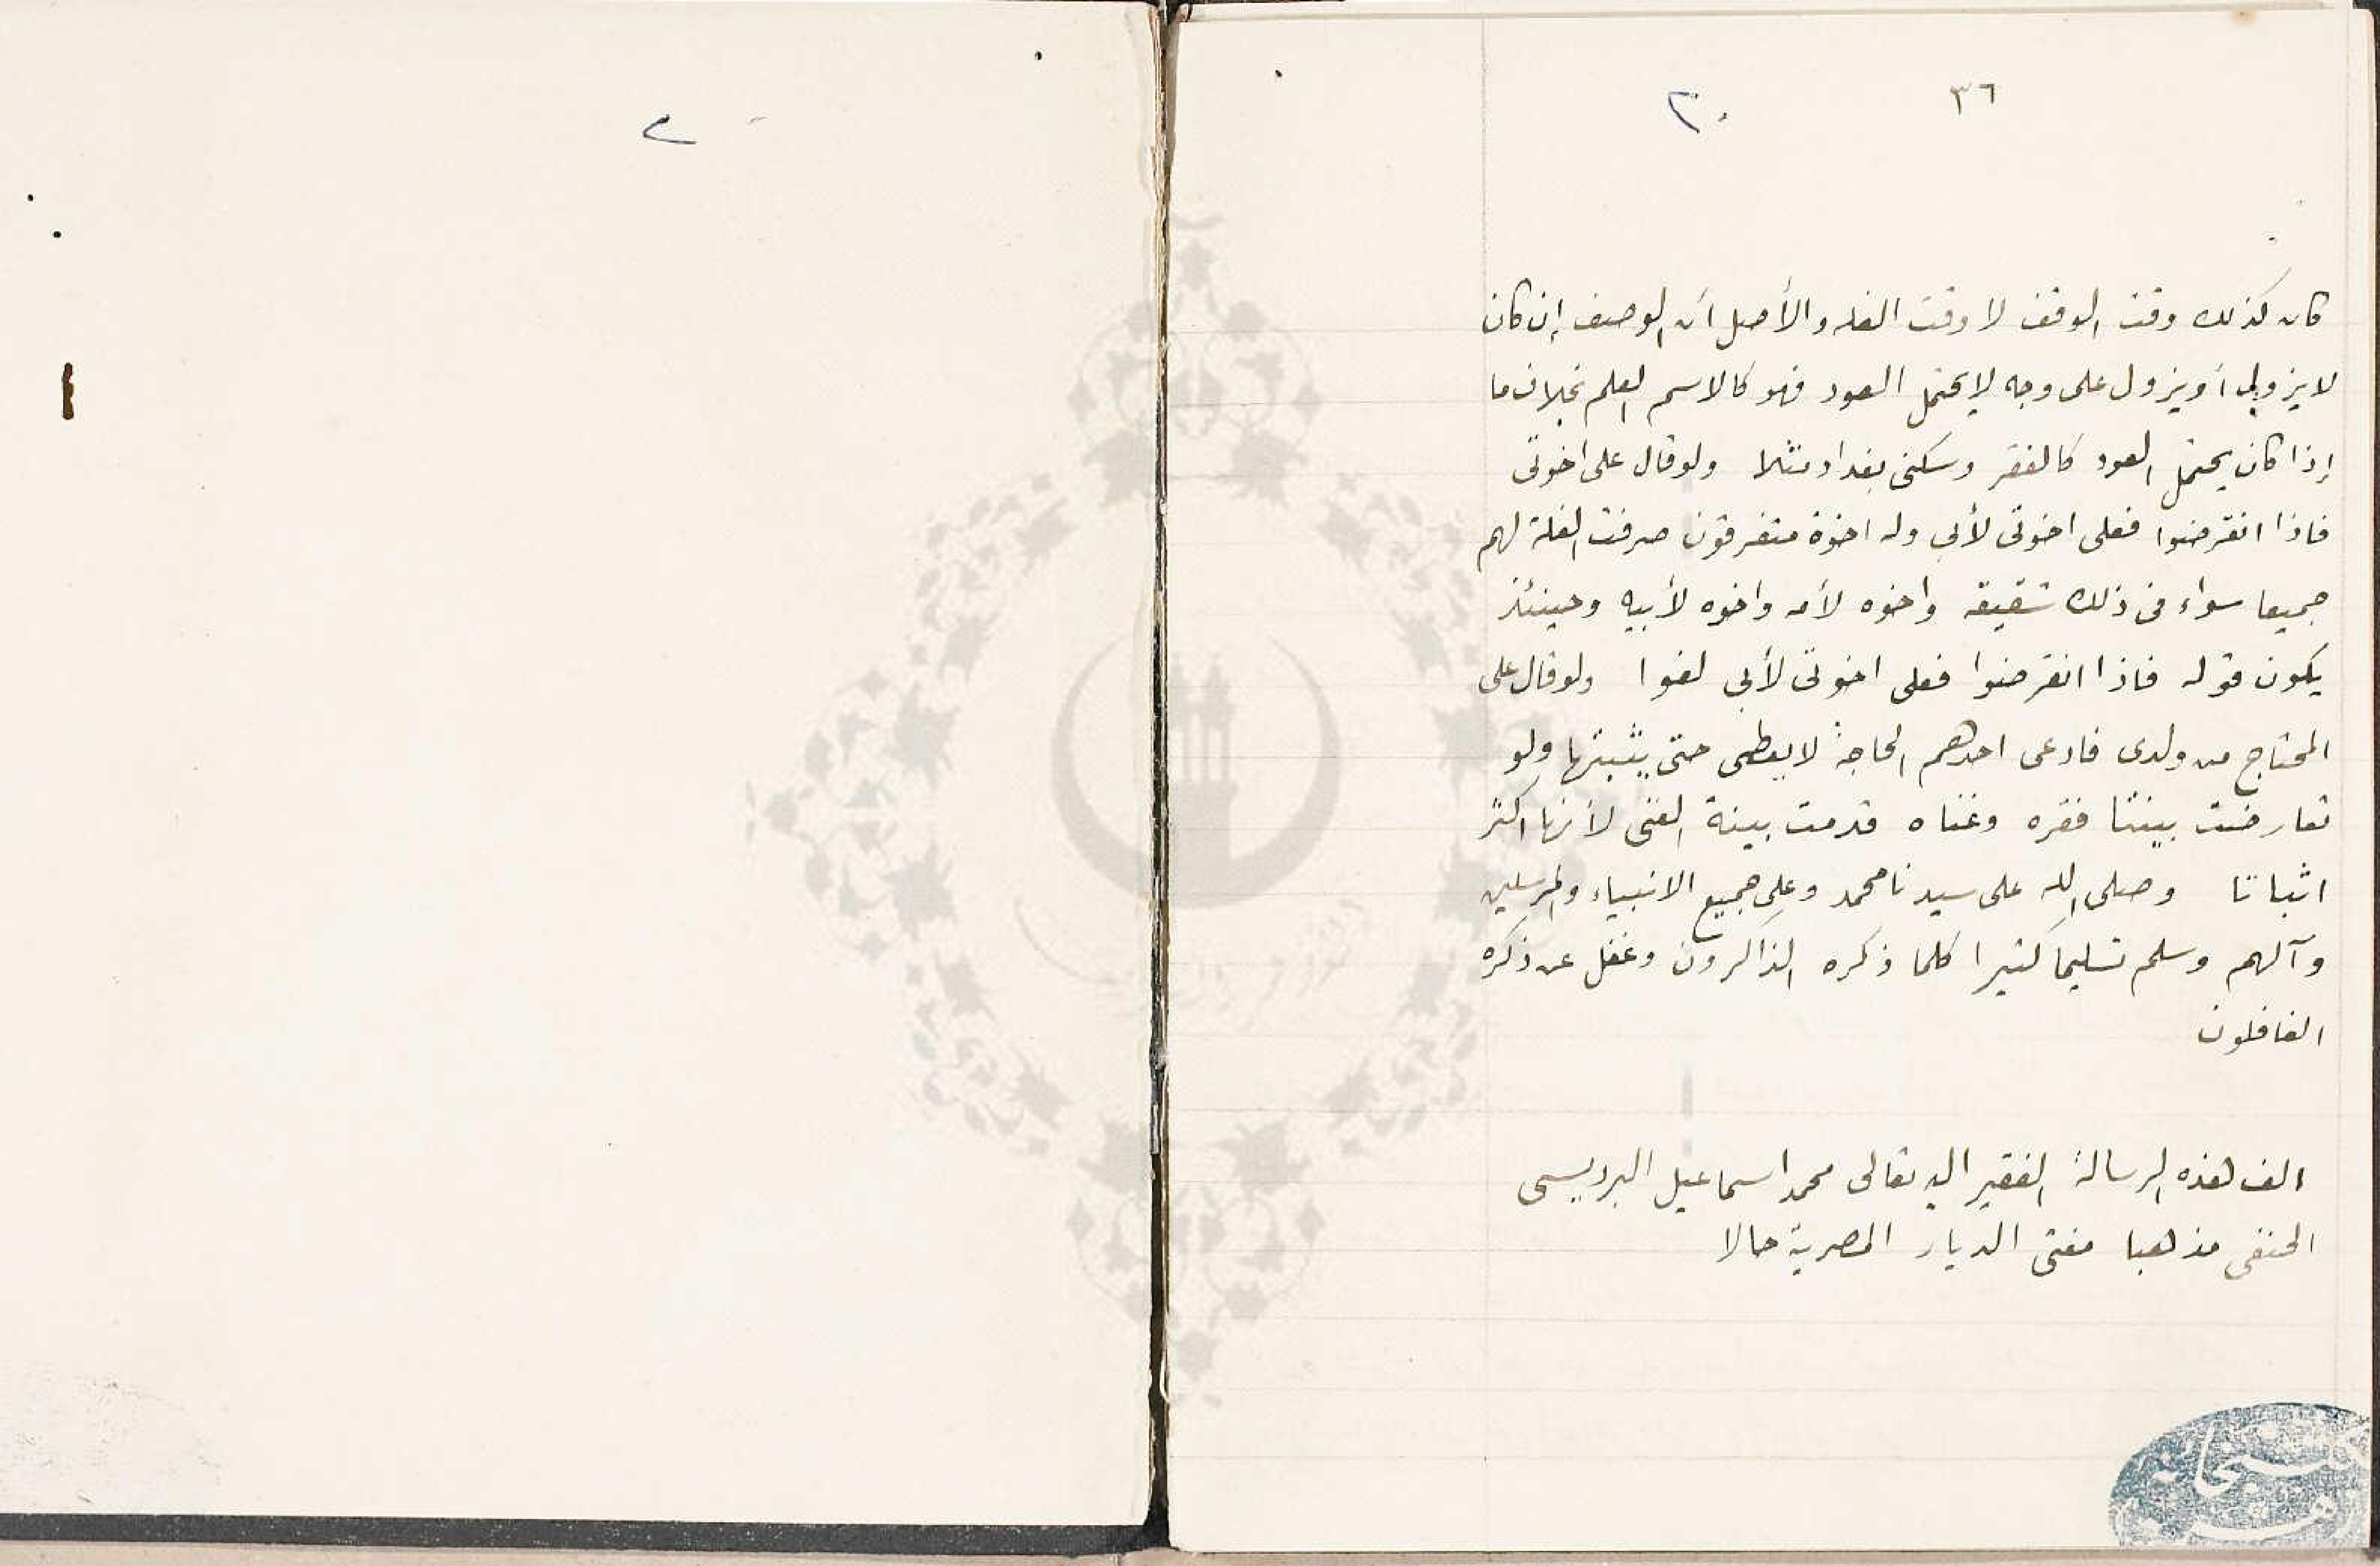 ٣٦
٣٠
كان كذلك وقت الوقف لا وقت الغله والأصل أن الوصف إن كان
لا يزول أو يزول على وجه لا يحتمل العود فهو كالاسم العلم بخلاف ما
إذا كان يحتمل العود كالفقر وسكنى بغداد مثلا ولو قال على اخوتى
فاذا انقرضوا فعلى اخوتى لأبى وله اخوة متفرقون صرفت الغلة لهم
جميعا سواء فى ذلك شقيقه واخوه لأمه واخوه لأبيه وحينئذ
يكون قوله فاذا انقرضوا فعلى اخوتى لأبى لغوا ولو قال على
المحتاج من ولدى فادعى احدهم الحاجة لا يعطى حتى يثبتها ولو
تعارضت بينتا فقره وغناه قدمت بينة الغنى لأنها اكثر
اثباتا وصلى الله على سيدنا محمد وعلى جميع الانبياء والمرسلين
وآلهم وسلم تسليما كثيرا كلما ذكره الذاكرون وغفل عن ذكره
الغافلون
الف هذه الرسالة الفقير اليه تعالى محمد اسماعيل البرديسى
الحنفى مذهبا مفتى الديار المصرية حالا